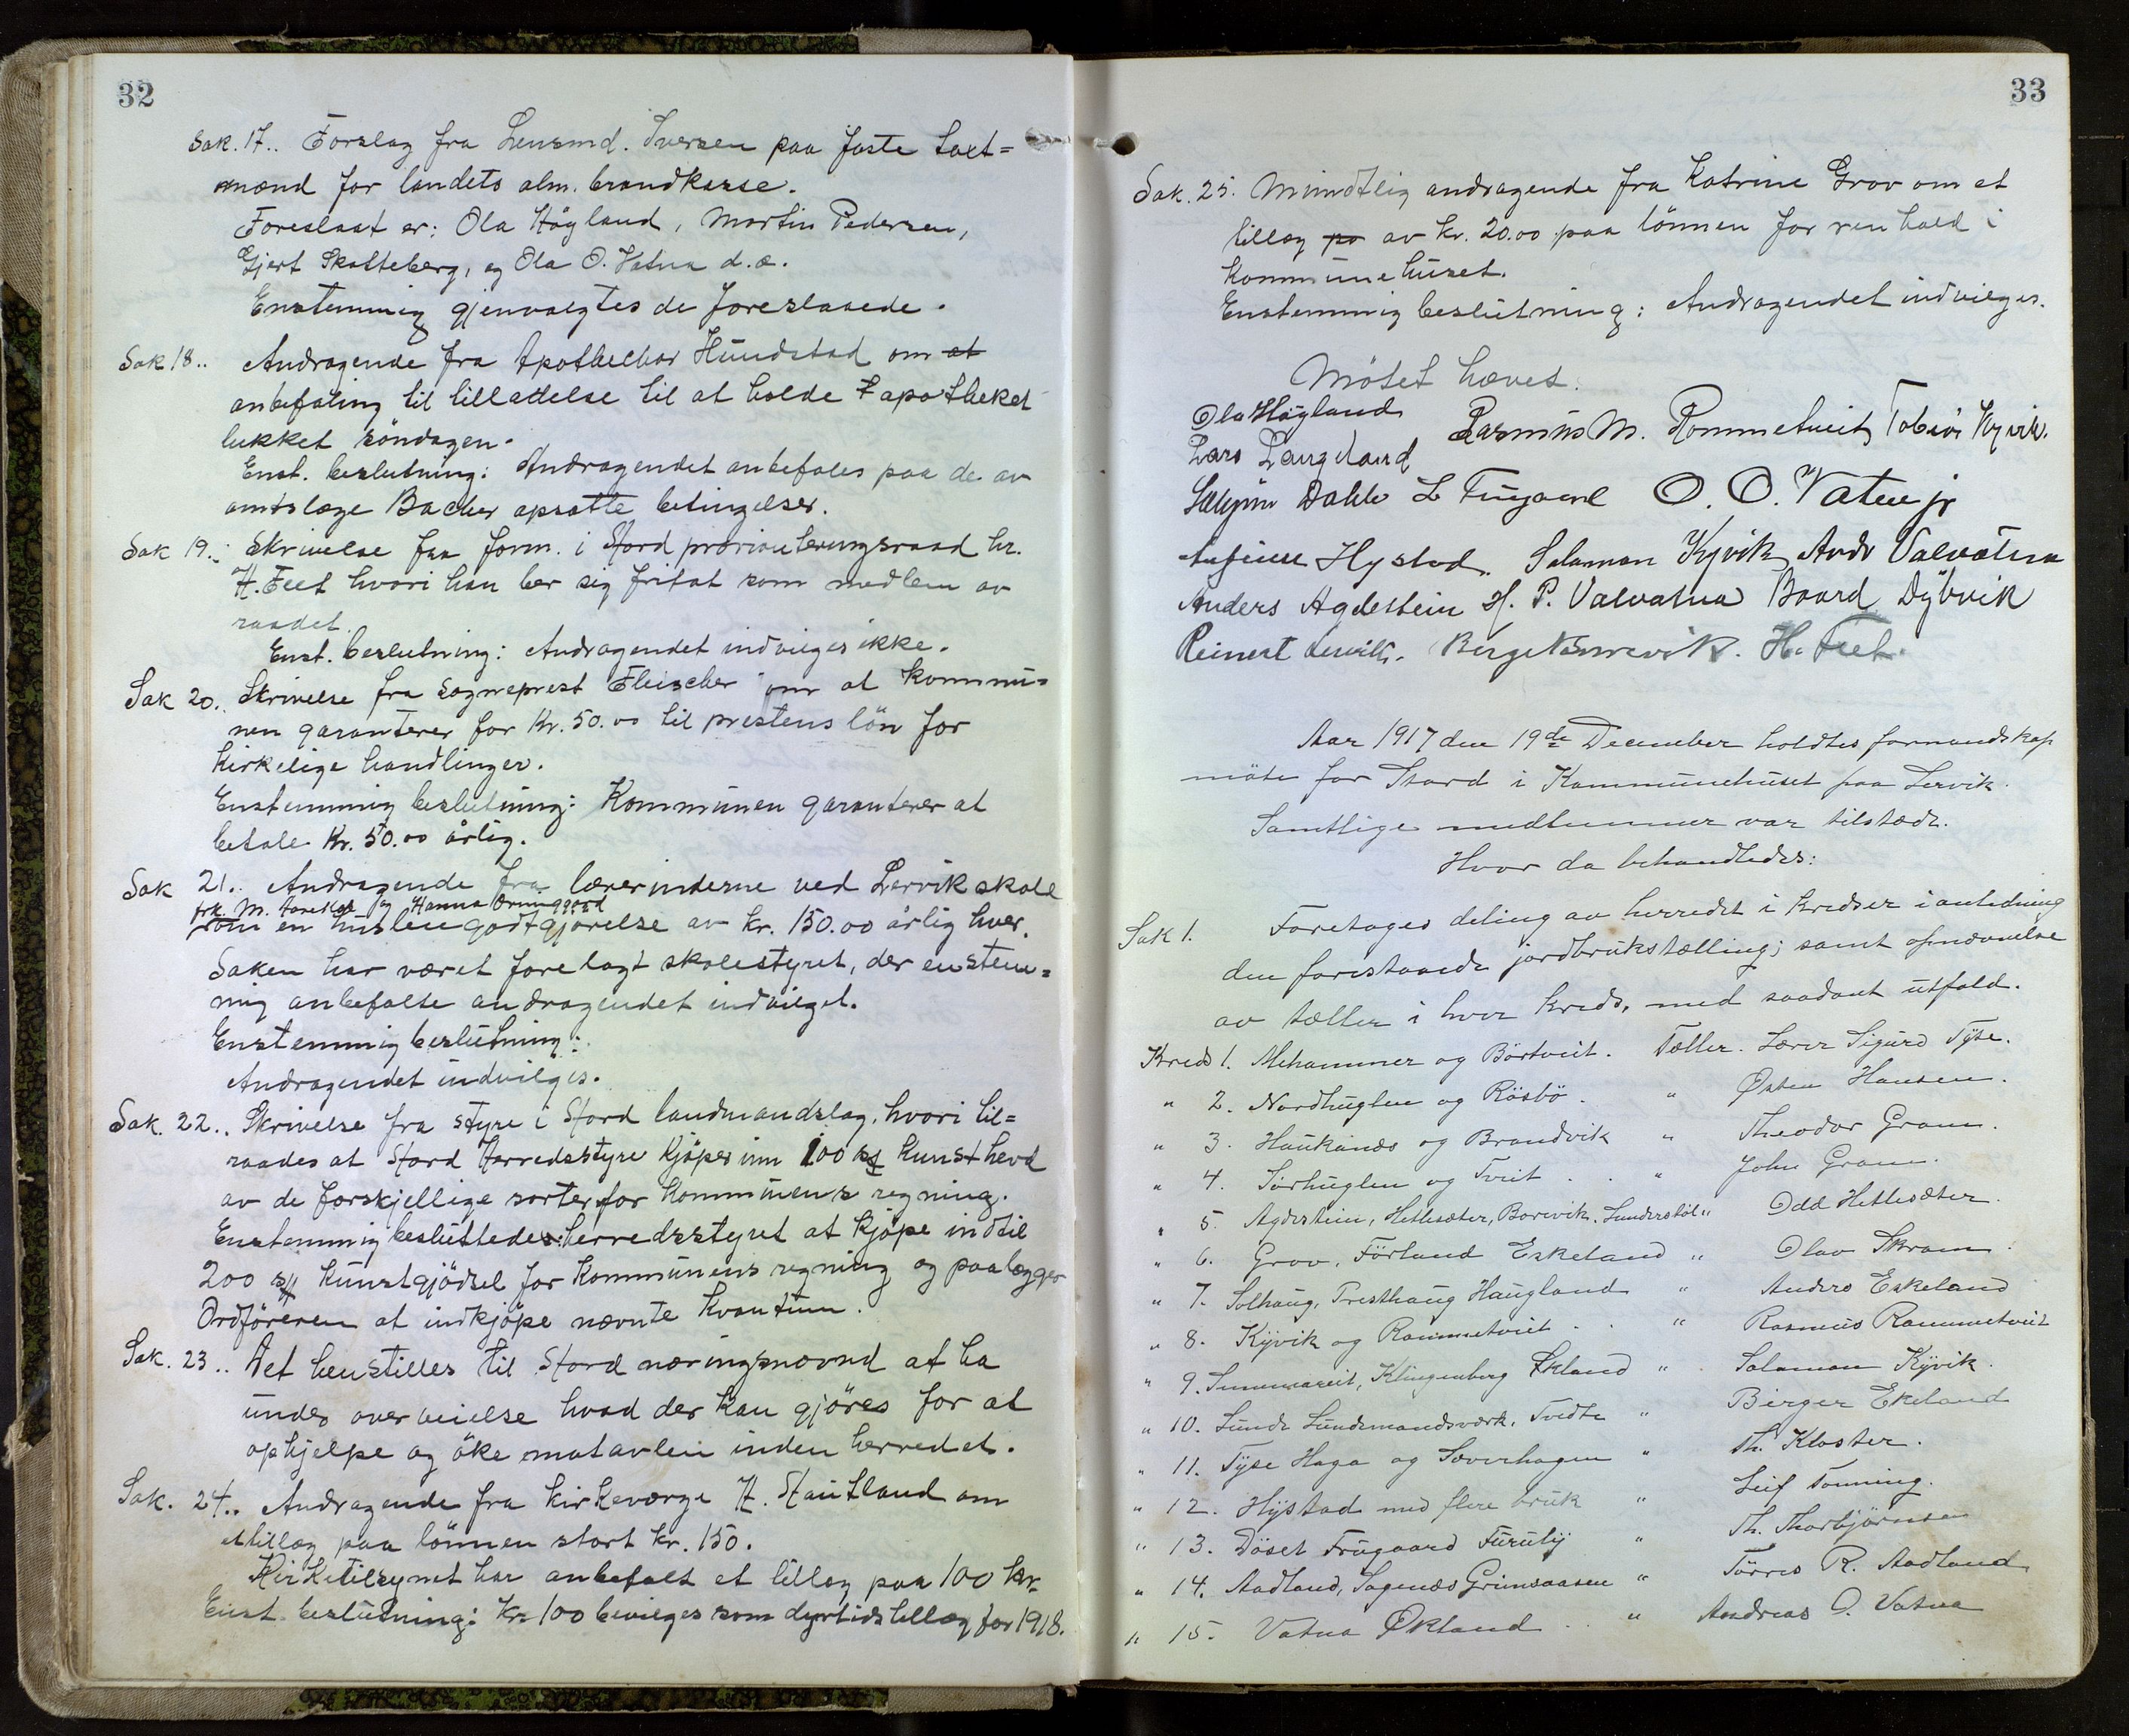 32
Sak. 17.. Forslag fra Lensmd. Iversen paa faste taxt=
mænd for landets alm. brandkasse.
Foreslaat er: Ola Höyland, Martin Pedersen,
Gjert Skatteberg, og Ola O. Vatna d.æ.
Enstemmig gjenvalgtes de foreslaaede.
Sak 18.. Andragende fra Apotheker Hundstad om at
anbefaling til tillattelse til at holde apotheket
lukket söndagen.
Enst. beslutning: Andragendet anbefales paa de av
amtslæge Backer opsatte betingelser.
Sak 19.. Skrivelse fra form. i Stord provianteringsraad hr.
H. Feet hvori han ber sig fritat som medlem av
raadet.
Enst. beslutning: Andragendet indvilges ikke.
Sak 20.. Skrivelse fra Sogneprest Fleischer om at kommu=
nen garanterer for Kr. 50.00 til prestens lön for
kirkelige handlinger.
Enstemmig beslutning: Kommunen garanterer at
betale Kr. 50.00 årlig.
Sak 21.. Andragende fra lærerinderne ved Lervik skole
frk. M. og Hanna
om en husleiegodtgjörelse av kr. 150.00 årlig hver.
Saken har været forelagt skolestyret, der enstem=
mig anbefalte andragendet indvilget.
Enstemmig beslutning:
Andragendet indvilges.
Sak. 22.. Skrivelse fra styre i Stord landmandslag, hvori til=
raades at Stord Herredsstyre kjöper inn 100 sk kunsthevd
av de forskjellige sorter for kommunens regning.
Enstemmig besluttedes: herredsstyret at kjöpe indtil
200 sk kunstgjödsel for kommunens regning og paalægger
Ordföreren at indkjöpe nævnte kvantum.
Sak. 23.. Det henstilles til Stord næringsnævnd at ha
under overveielse hvad der kan gjöres for at
ophjelpe og öke matavlen inden herredet.
Sak. 24.. Andragende fra kirkeværge H. Stautland om
et tillæg paa lönnen stort kr. 150.
Kirketilsynet har anbefalt et tillæg paa 100 kr.
Enst. beslutning: Kr 100 bevilges som dyrtidstillæg for 1918.
33
Sak. 25. Mundtlig andragende fra Katrine Grov om et
tillæg pa av kr. 20.00 paa lönnen for renhold i
kommunehuset.
Enstemmig beslutning: Andragendet indvilges.
Mötet hæves.
Ola Höyland Rasmus M. Rommetveit Tobias Kyvik.
Lars Langeland
Dahle L Frugaard O. O. Vatne jr
Hystad. Salamon Kyvik Andr Valvatna
Anders Agdestein H. P. Valvatna Baard Dybvik
Reinert Lervik. Berge H. Feet.
Aar 1917 den 19de December holdtes formandskap
möte for Stord i Kommunehuset paa Lervik.
Samtlige medlemmer var tilstæde.
Hvor da behandledes:
Sak 1. Foretoges deling av herredet i kredser i anledning
den forestaaende jordbrukstælling; samt opnævnelse
av tæller i hver kreds, med saadant utfald.
Kreds 1. Mehammer og Börtveit. Tæller. Lærer Sigurd Tyse.
" 2. Nordhuglen og Rösbö. " Östen Hansen.
" 3. Haukanæs og Brandvik " Theodor Gram.
" 4. Sörhuglen og Tveit . . " John Gram.
" 5. Agdestein, Hetlesæter, Borevik. Lunderstöl " Odd Hetlesæter.
" 6. Grov, Förland Eskeland " Olav Skram.
" 7. Solhaug, Presthaug Haugland " Anders Eskeland
" 8. Kyvik og Rommetveit . . " Rasmus Rommetveit
" 9. Klingenberg Ekland " Salamon Kyvik.
" 10. Lunde Lundemandsværk. Tvedte " Birger Ekeland
" 11. Tyse Haga og Sæverhagen " Th. Kloster.
" 12. Hystad med flere bruk " Leif Tonning.
" 13. Döset Frugaard Furuly " Th. Thorbjörnsen
" 14. Aadland, Sagenæs Grunsaasen " Törres R. Aadland
" 15. Vatna Økland . . " Andreas O. Vatna